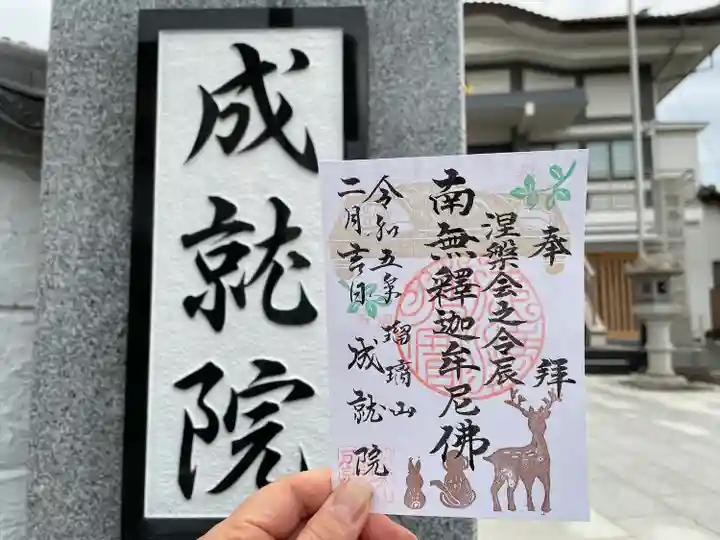 成就院
奉拝
涅槃会之令辰
南無釋迦牟尼佛
令和五年
二月吉日
瑠璃山
成就院